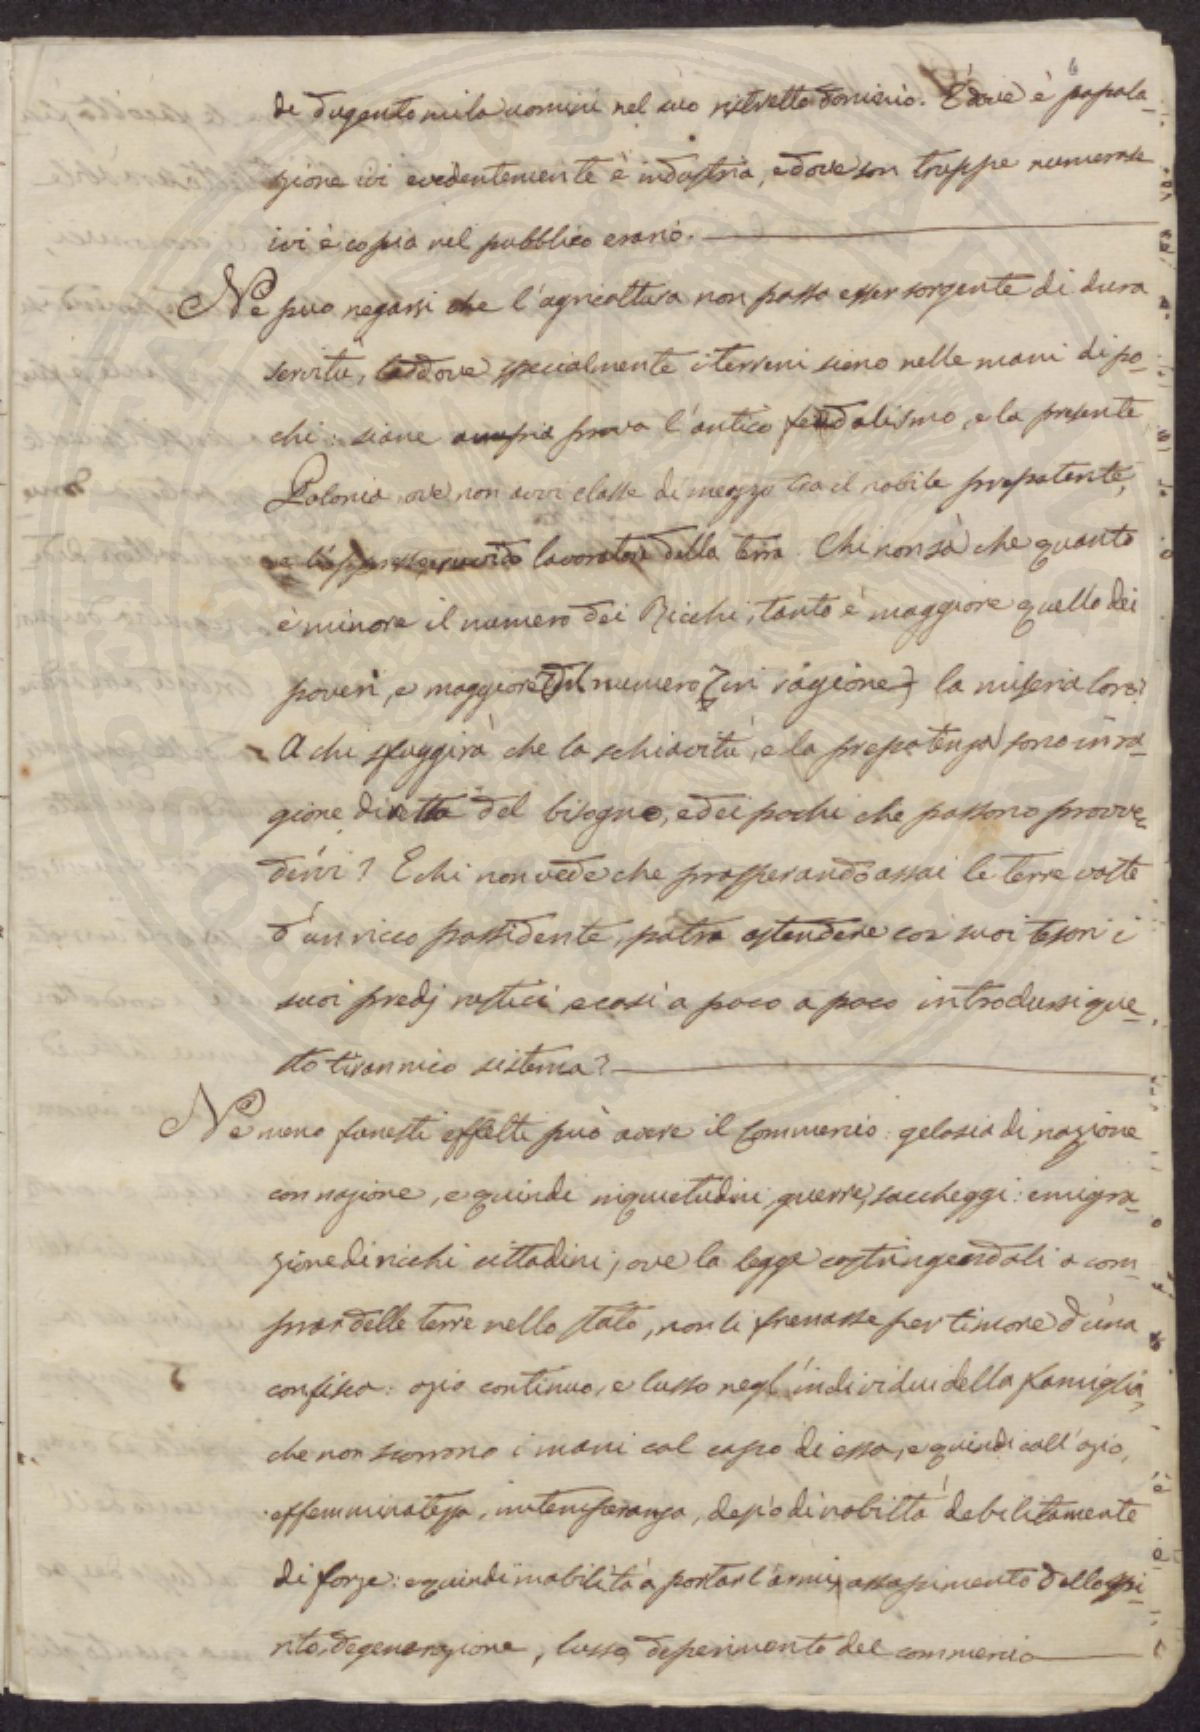 di dugentomila uomini nel suo ristretto dominio. E dove è popola-
zione ivi evidentemente è industria, e dove son truppe numerose
ivi è copia nel pubblico erario.
Ne può negarsi che l'agricoltura non possa esser sorgente di dura
servitù, laddove specialmente i terreni sieno nelle mani di po-
chi: siane ampia prova l'antico feudalismo, e la presente
Polonia, ove non avvi classe di mezzo tra il nobile prepotente,
e lavoratore della terra. Chi non sà che quanto
è minore il numero dei Ricchi, tanto è maggiore quello dei
poveri, e maggiore del numero in ragione la miseria loro?
A chi sfuggirà che la schiavitù, e la prepotenza sono in ra-
gione diretta del bisogno, e dei pochi che possono provve-
dervi? E chi non vede che prosperando assai le terre vaste
d'un ricco possidente, potrà estendere coi suoi tesori i
suoi predj rustici, e così a poco a poco introdursi que-
sto tirannico sistema?
Ne meno funesti effetti può avere il Commercio: gelosia di nazione
con nazione, e quindi inquietudini, guerre, saccheggi: emigra-
zione di ricchi cittadini, ove la legge costringendoli a com-
prar delle terre nello stato, non li frenasse per timore d'una
confisca: ozio continuo, e lusso negl'individui della famiglia,
che non scorrono i mari col capo di essa, e quindi coll'ozio,
effemminatezza, intemperanza, debilitamento
di forze: e quindi inabilità a portar l'armi, assopimento dello spi-
rito, degenerazione, lusso, deperimento del commercio